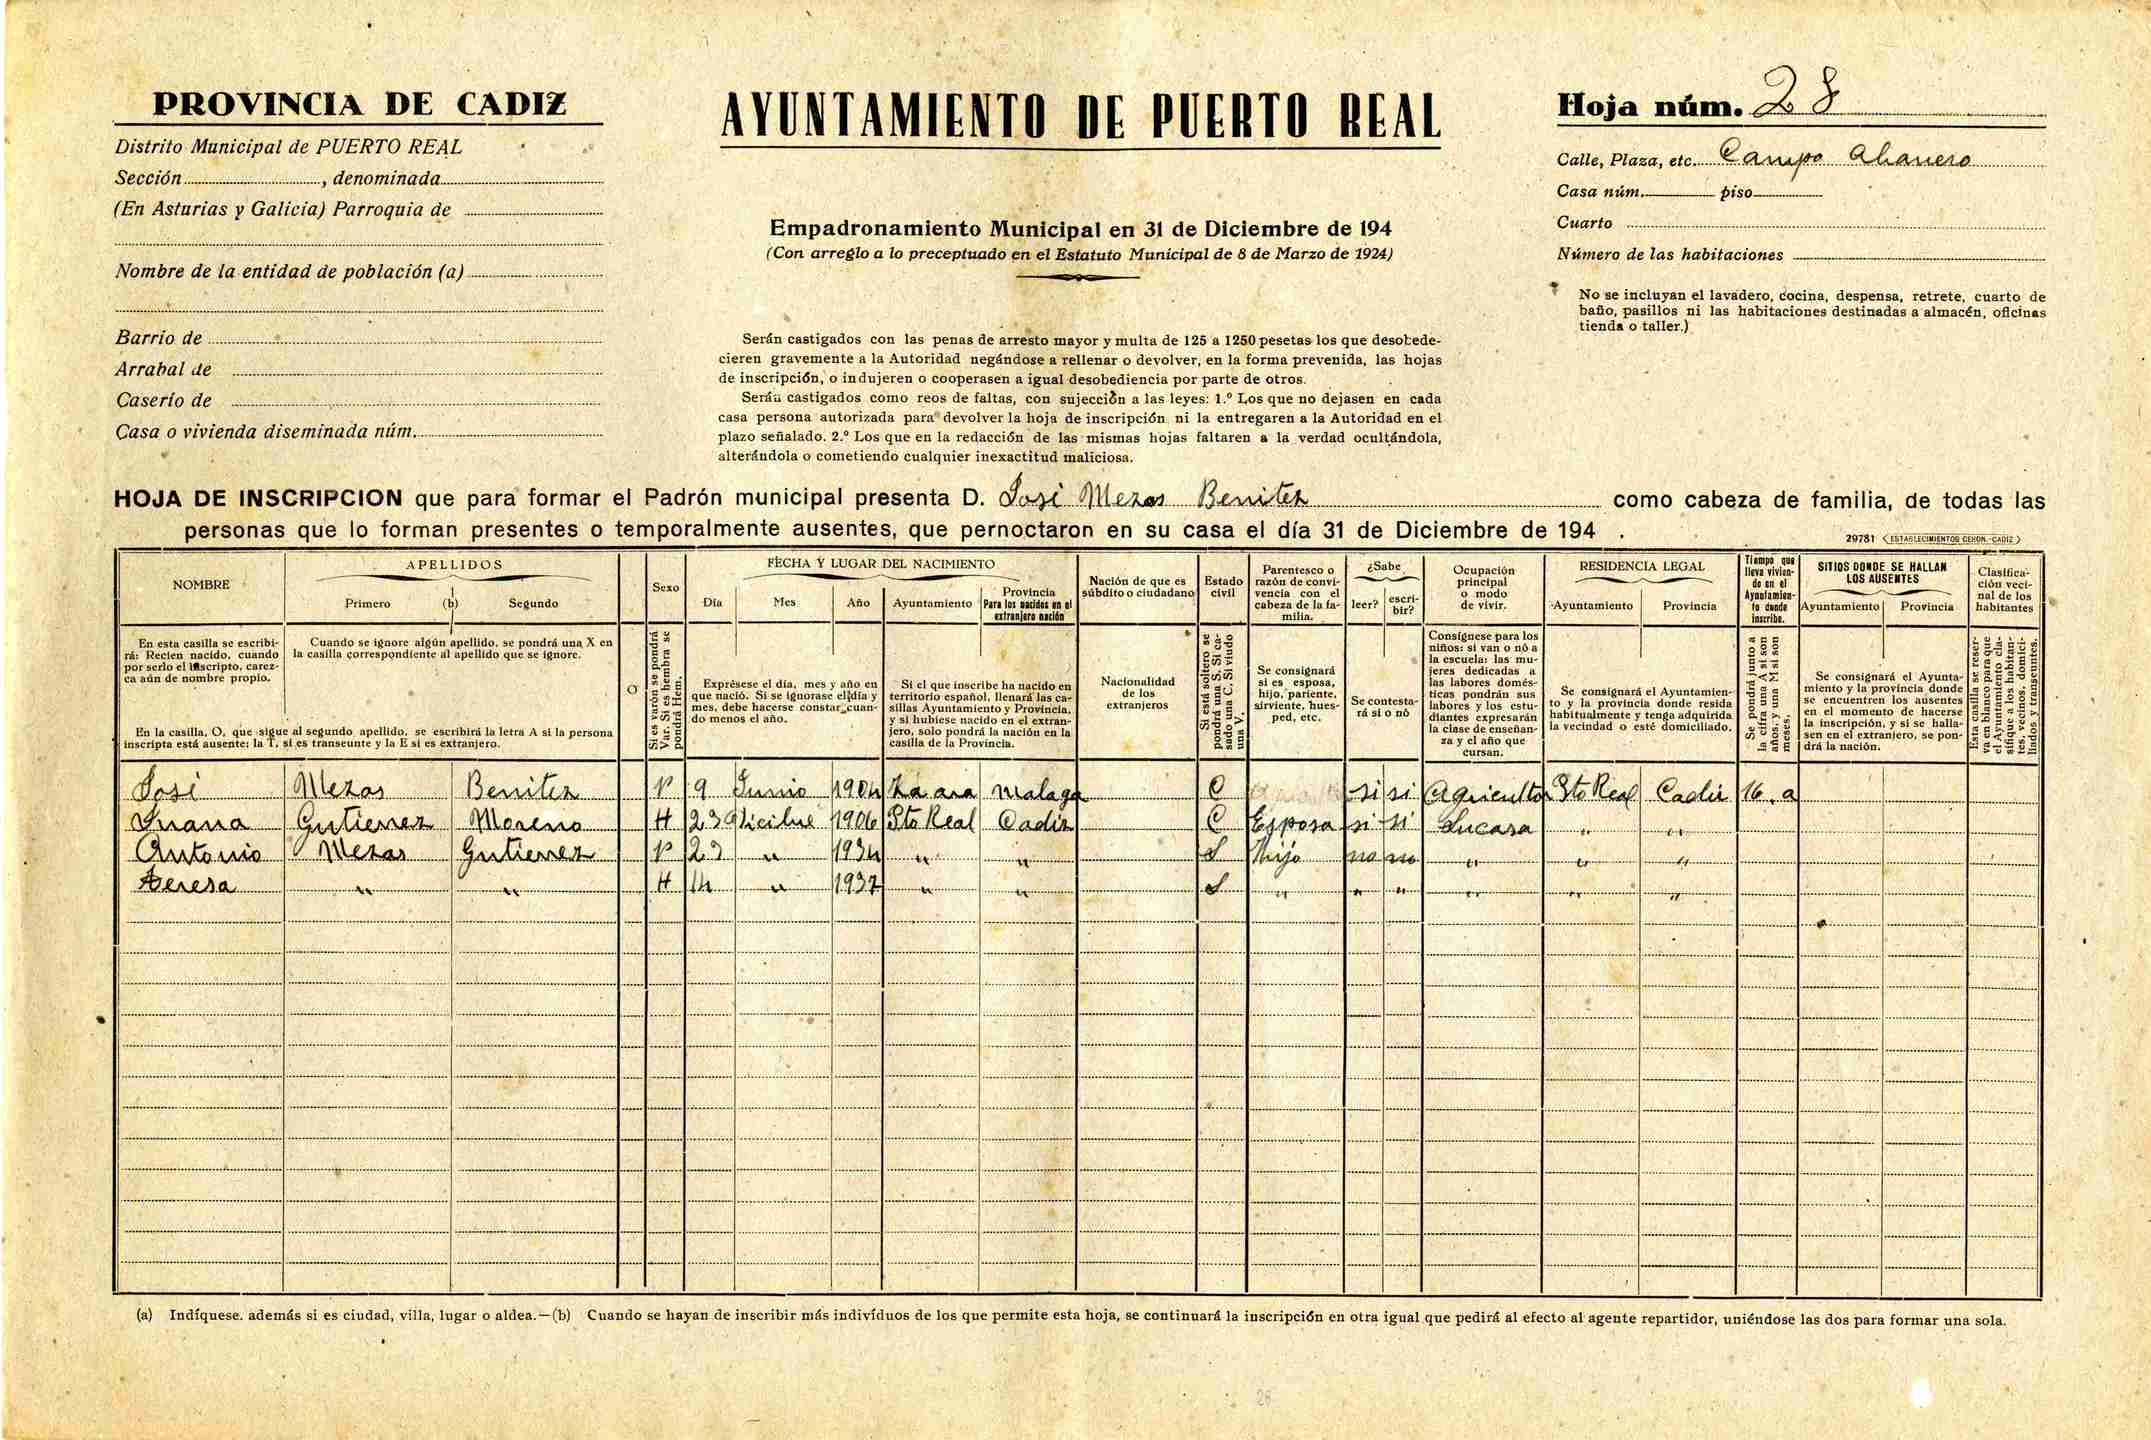 PROVINCIA DE CADIZ
Distrito Municipal de PUERTO REAL
Sección, denominada
(En Asturias y Galicia) Parroquia de
Nombre de la entidad de población (a)
Barrio de
Arrabal de
Caserío de
Casa o vivienda diseminada núm.
AYUNTAMIENTO DE PUERTO REAL
Empadronamiento Municipal en 31 de Diciembre de 194
(Con arreglo a lo preceptuado en el Estatuto Municipal de 8 de Marzo de 1924)
Serán castigados con las penas de arresto mayor y multa de 125 a 1250 pesetas los que desobede-
cieren gravemente a la Autoridad negándose a rellenar o devolver, en la forma prevenida, las hojas
de inscripción, o indujeren o cooperasen a igual desobediencia por parte de otros.
Serán castigados como reos de faltas, con sujección a las leyes: 1.º Los que no dejasen en cada
casa persona autorizada para devolver la hoja de inscripción ni la entregaren a la Autoridad en el
plazo señalado. 2.º Los que en la redacción de las mismas hojas faltaren a la verdad ocultándola,
alterándola o cometiendo cualquier inexactitud maliciosa.
Hoja núm. 28
Calle, Plaza, etc. Campo Abanero
Casa núm. piso
Cuarto
Número de las habitaciones
No se incluyan el lavadero, cocina, despensa, retrete, cuarto de
baño, pasillos ni las habitaciones destinadas a almacén, oficinas
tienda o taller.)
HOJA DE INSCRIPCION que para formar el Padrón municipal presenta D. José Mezas Benitez como cabeza de familia, de todas las
personas que lo forman presentes o temporalmente ausentes, que pernoctaron en su casa el día 31 de Diciembre de 194 .
29781 (ESTABLECIMIENTOS CERON.-CADIZ)
NOMBRE
En esta casilla se escribi-
rá: Recien nacido, cuando
por serlo el inscripto, carez-
ca aún de nombre propio.
APELLIDOS
Primero (b) Segundo
Cuando se ignore algún apellido, se pondrá una X en
la casilla correspondiente al apellido que se ignore.
En la casilla, O, que sigue al segundo apellido, se escribirá la letra A si la persona
inscripta está ausente; la T, si es transeunte y la E si es extranjero.
O
Sexo
Si es varón se pondrá
Var. Si es hembra se
pondrá Hem.
FECHA Y LUGAR DEL NACIMIENTO
Día Mes Año Ayuntamiento
Provincia
Para los nacidos en el
extranjero nación
Exprésese el día, mes y año en
que nació. Si se ignorase el día y
mes, debe hacerse constar cuan-
do menos el año.
Si el que inscribe ha nacido en
territorio español, llenará las ca-
sillas Ayuntamiento y Provincia,
y si hubiese nacido en el extran-
jero, solo pondrá la nación en la
casilla de la Provincia.
Nación de que es
súbdito o ciudadano
Nacionalidad
de los
extranjeros
Estado
civil
Si está soltero se
pondrá una S. Si ca-
sado una C. Si viudo
una V.
Parentesco o
razón de convi-
vencia con el
cabeza de la fa-
milia.
Se consignará
si es esposa,
hijo, pariente,
sirviente, hues-
ped, etc.
¿Sabe
leer? escri-
bir?
Se contesta-
rá si o nó
Ocupación
principal
o modo
de vivir.
Consígnese para los
niños: si van o nó a
la escuela; las mu-
jeres dedicadas a
las labores domés-
ticas pondrán sus
labores y los estu-
diantes expresarán
la clase de enseñan-
za y el año que
cursan.
RESIDENCIA LEGAL
Ayuntamiento Provincia
Se consignará el Ayuntamien-
to y la provincia donde resida
habitualmente y tenga adquirida
la vecindad o esté domiciliado.
Tiempo que
lleva vivien-
do en el
Ayuntamien-
to donde
inscribe.
Se pondrá junto a
la cifra una A si son
años, y una M si son
meses.
SITIOS DONDE SE HALLAN
LOS AUSENTES
Ayuntamiento Provincia
Se consignará el Ayunta-
miento y la provincia donde
se encuentren los ausentes
en el momento de hacerse
la inscripción, y si se halla-
sen en el extranjero, se pon-
drá la nación.
Clasifica-
ción veci-
nal de los
habitantes
Esta casilla se reser-
va en blanco para que
el Ayuntamiento cla-
sifique a los habitan-
tes, vecinos, domici-
liados y transeuntes.
José Mezas Benitez V 9 Junio 1904 malaga C si si Agricultor Pto Real Cadiz 16 . a
Juana Gutierrez Moreno H 23 Dicibre 1906 Pto Real Cadiz C Esposa si si Sucasa " "
Antonio Mezas Gutierrez V 23 " 1934 " " S Hijo no no " " "
Teresa " " H 14 " 1937 " " S " " " " " "
(a) Indíquese, además si es ciudad, villa, lugar o aldea.—(b) Cuando se hayan de inscribir más indivíduos de los que permite esta hoja, se continuará la inscripción en otra igual que pedirá al efecto al agente repartidor, uniéndose las dos para formar una sola.
28